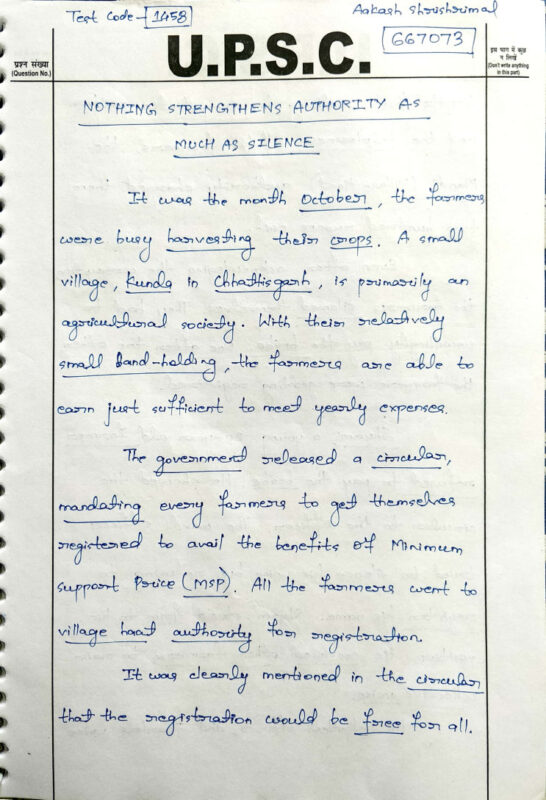 Test Code - 1458
Aakash Shrishrimal
667073
प्रश्न संख्या
(Question No.)
U.P.S.C.
इस भाग में कुछ
न लिखें
(Don't write anything
in this part)
NOTHING STRENGTHENS AUTHORITY AS
MUCH AS SILENCE
It was the month October, the farmers
were busy harvesting their crops. A small
village, Kunda in Chhattisgarh, is primarily an
agricultural society. With their relatively
small land-holding, the farmers are able to
earn just sufficient to meet yearly expenses.
The government released a circular,
mandating every farmers to get themselves
registered to avail the benefits of Minimum
support Price (MSP). All the farmers went to
village haat authority for registration.
It was clearly mentioned in the circular
that the registration would be free for all.